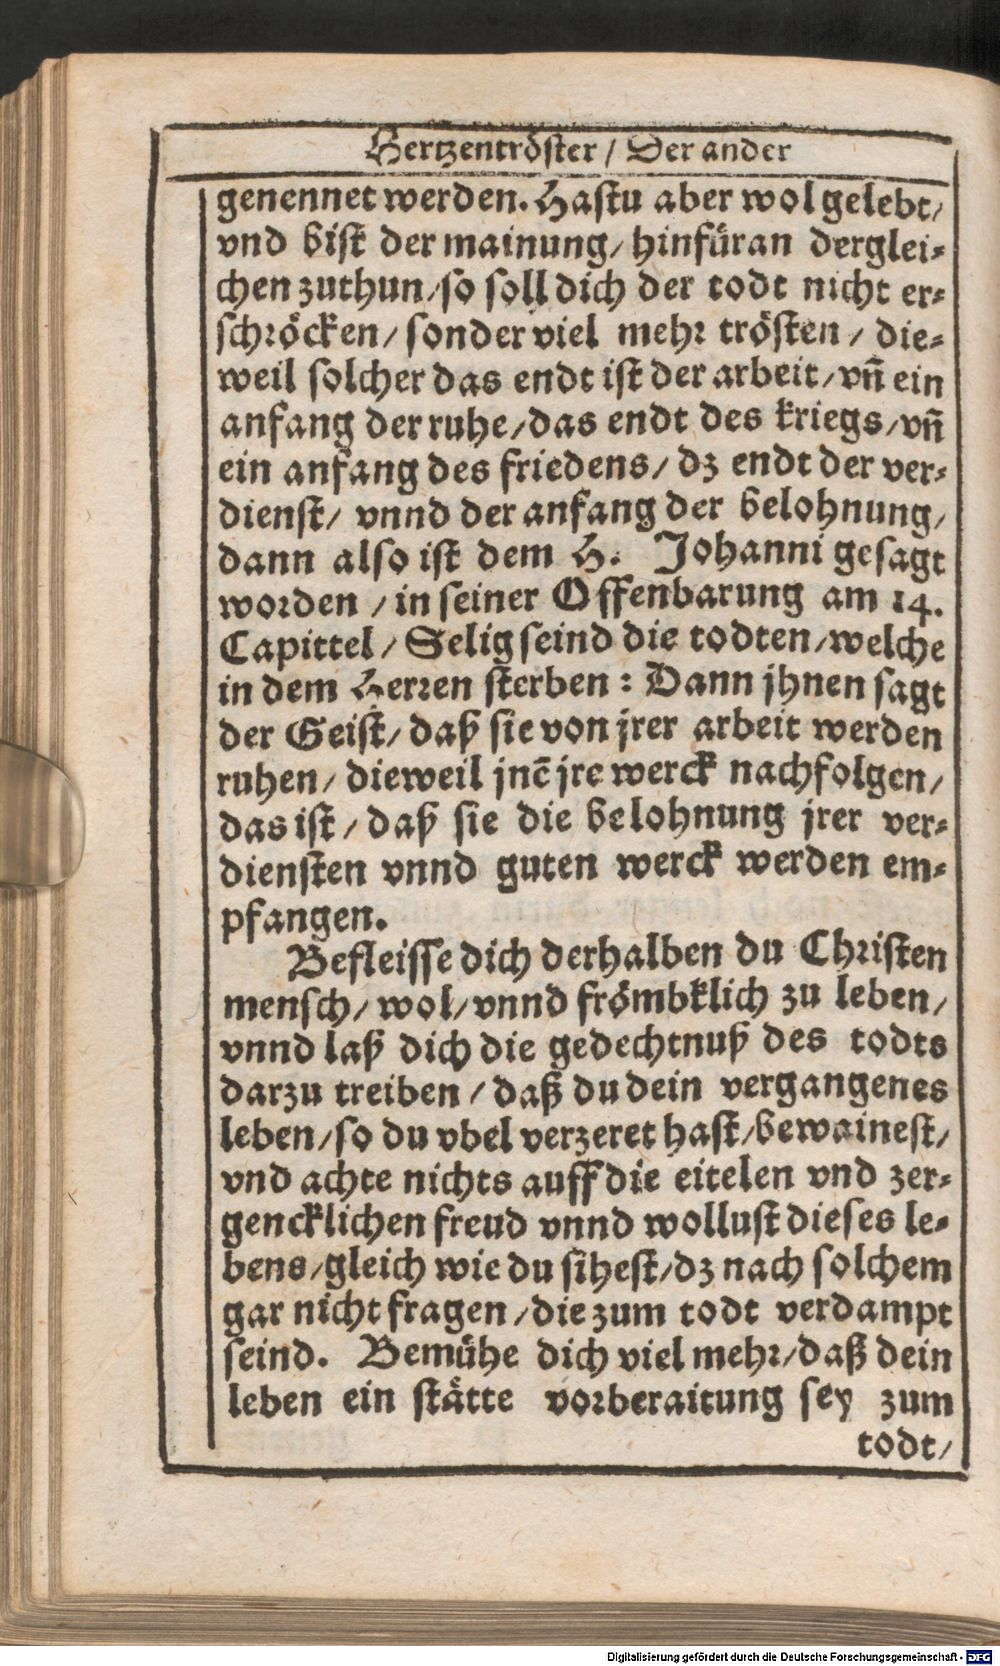 Hertzentröster / Der ander
genennet werden. Hastu aber wol gelebt/
vnd bist der mainung/ hinfüran derglei-
chen zuthun/ so soll dich der todt nicht er-
schröcken/ sonder viel mehr trösten / die-
weil solcher das endt ist der arbeit/ vñ ein
anfang der ruhe/ das endt des kriegs/ vñ
ein anfang des friedens/ dz endt der ver-
dienst/ vnnd der anfang der belohnung/
dann also ist dem H. Johanni gesagt
worden / in seiner Offenbarung am 14.
Capittel/ Selig seind die todten/ welche
in dem Herren sterben : Dann jhnen sagt
der Geist/ daß sie von jrer arbeit werden
ruhen/ dieweil jnẽ jre werck nachfolgen/
das ist / daß sie die belohnung jrer ver-
diensten vnnd guten werck werden em-
pfangen.
Befleisse dich derhalben du Christen
mensch/ wol/ vnnd frömbklich zu leben/
vnnd laß dich die gedechtnuß des todts
darzu treiben / daß du dein vergangenes
leben/ so du vbel verzeret hast/ bewainest/
vnd achte nichts auff die eitelen vnd zer-
gencklichen freud vnnd wollust dieses le-
bens/ gleich wie du sihest/ dz nach solchem
gar nicht fragen/ die zum todt verdampt
seind. Bemühe dich viel mehr/ daß dein
leben ein stätte vorberaitung sey zum
todt/
Digitalisierung gefördert durch die Deutsche Forschungsgemeinschaft - DFG